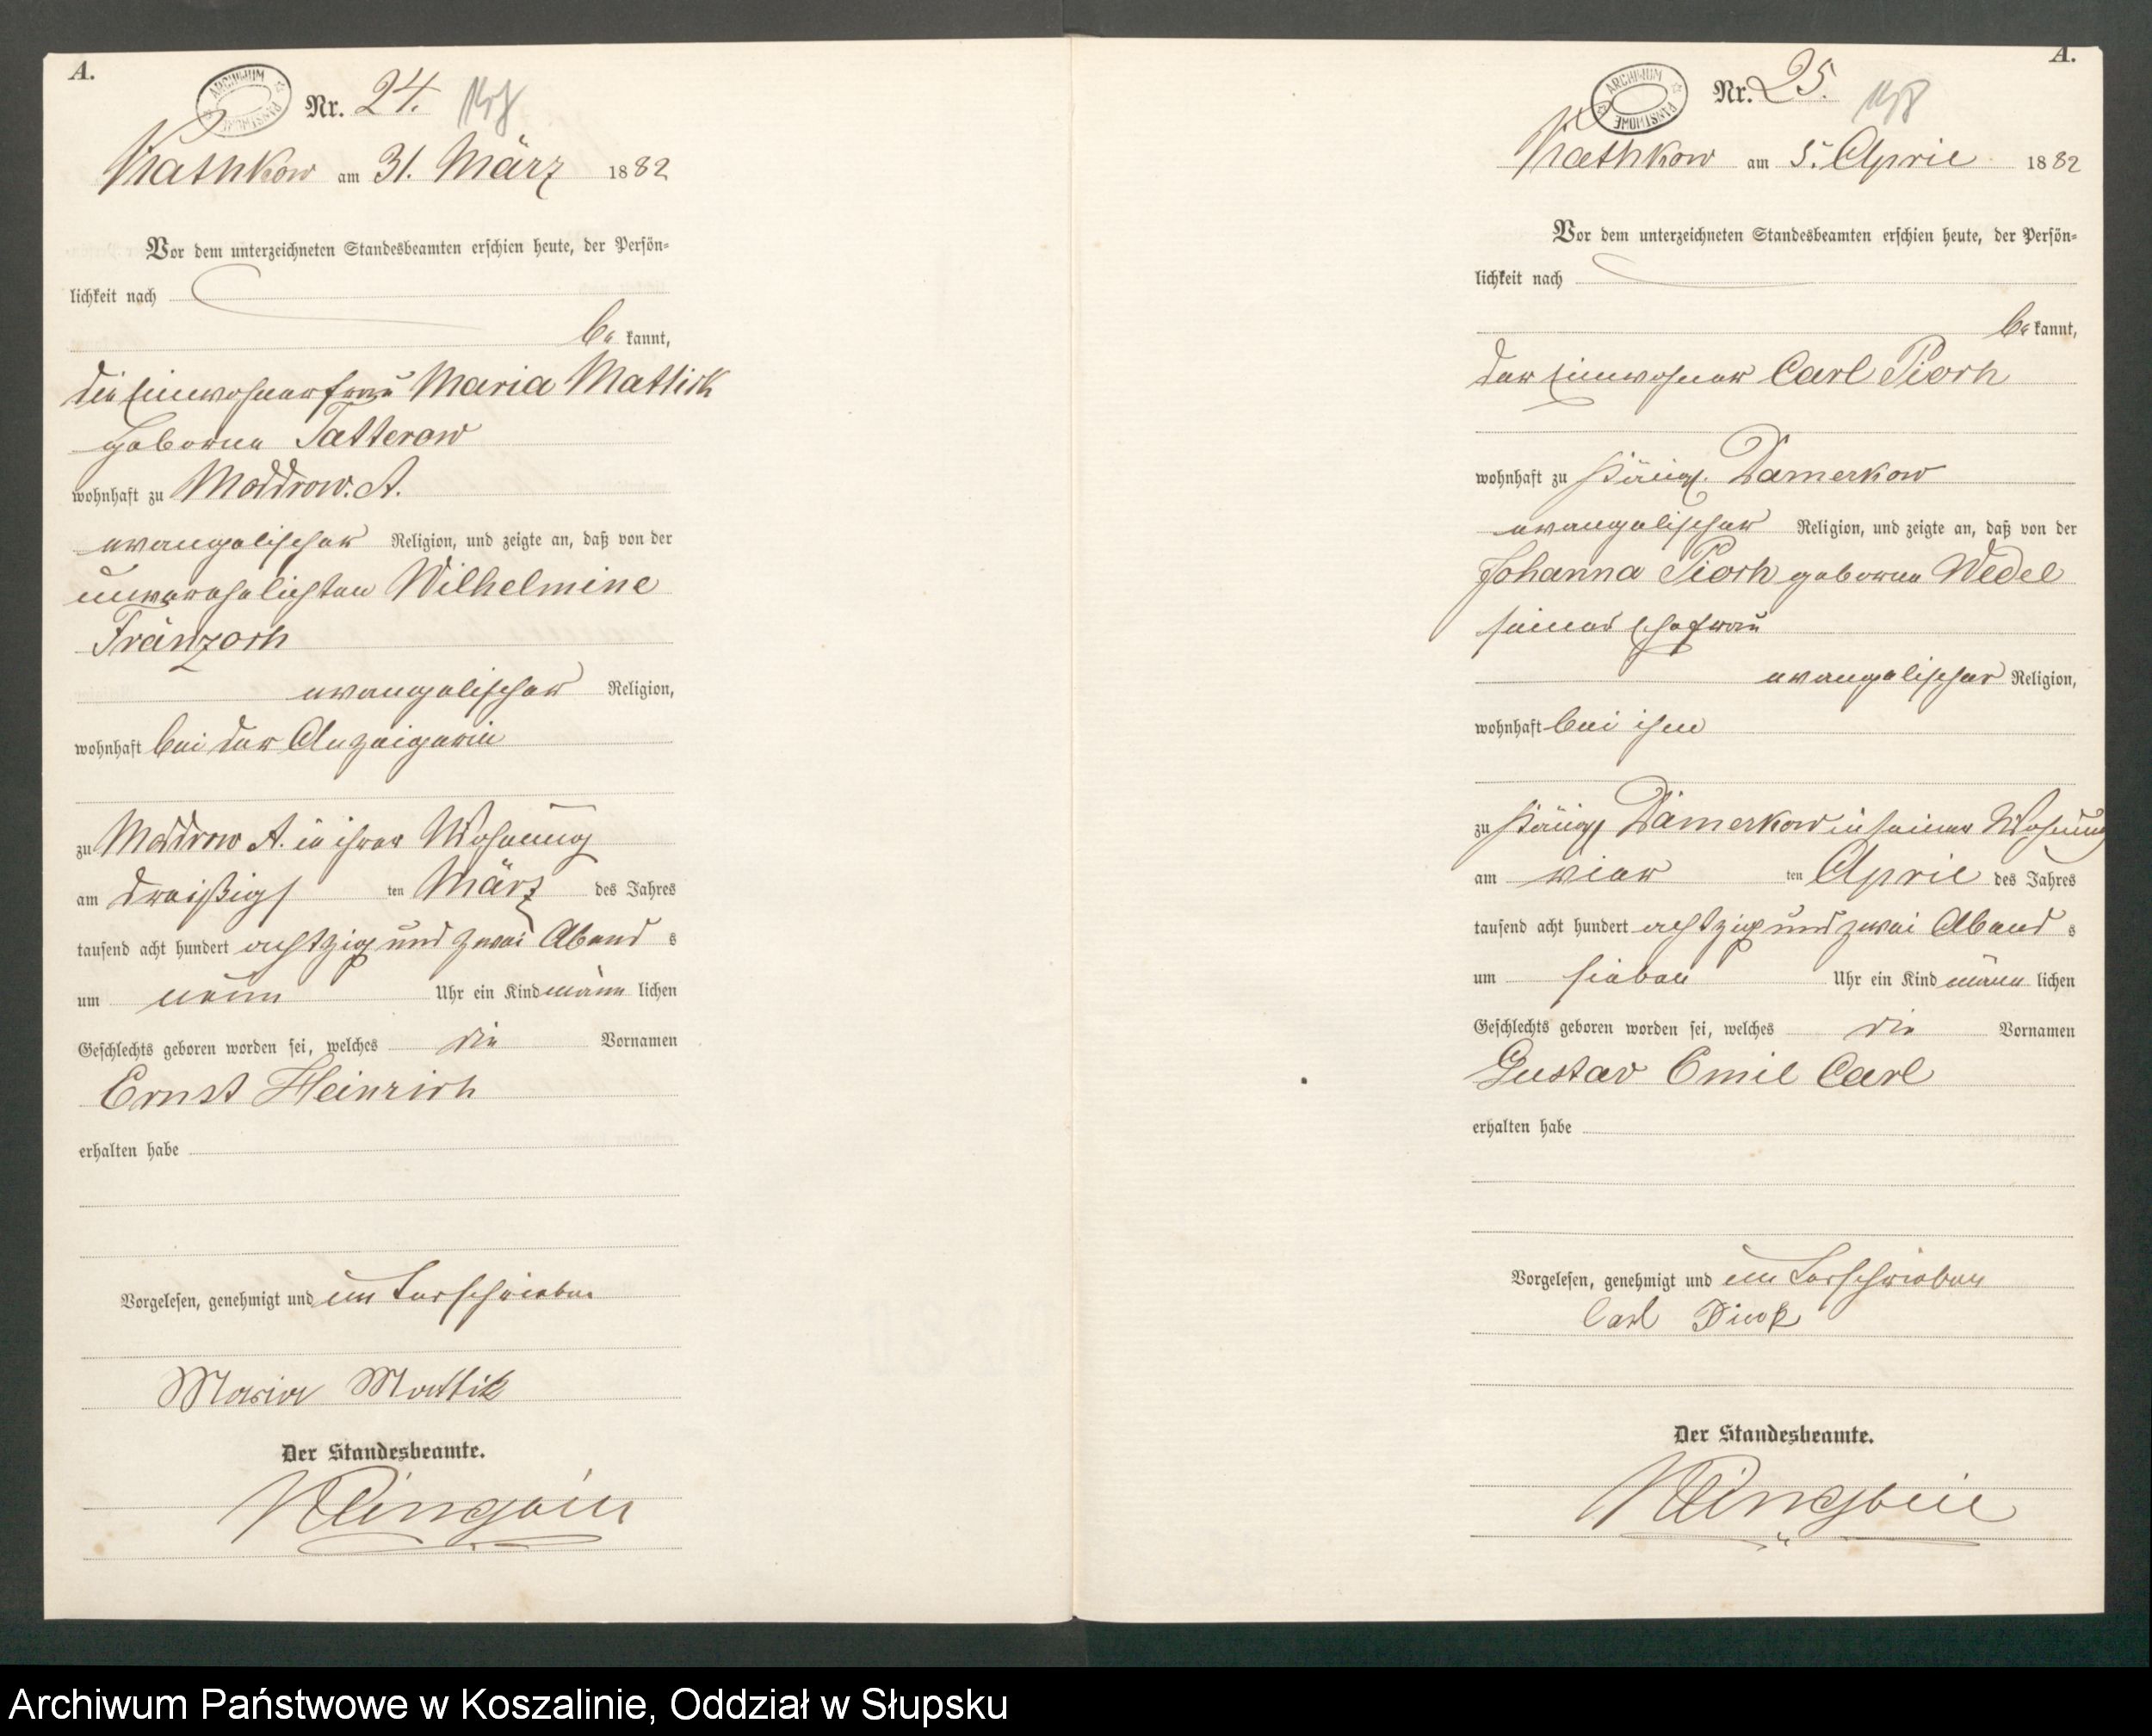 A.
ARCHIWUM PAŃSTWOWE
Nr. 24.
Kathkow am 31. März 1882
Vor dem unterzeichneten Standesbeamten erschien heute, der Persön-
lichkeit nach
be kannt,
die Einwohnerfrau Maria Mattick
geborne Tatterow
wohnhaft zu Moddrow. A.
evangelischer Religion, und zeigte an, daß von der
unverehelichten Wilhelmine
Fränzoch
evangelischer Religion,
wohnhaft bei der Anzeigerin
zu Moddrow A. in ihrer Wohnung
am dreißigs ten März des Jahres
tausend acht hundert achtzig und zwei Abend s
um neun Uhr ein Kind männ lichen
Geschlechts geboren worden sei, welches die Vornamen
Ernst Heinrich
erhalten habe
Vorgelesen, genehmigt und unterschrieben
Maria Mattik
Der Standesbeamte.
A.
ARCHIWUM PAŃSTWOWE
Nr. 25.
158
Kathkow am 5. April 1882
Vor dem unterzeichneten Standesbeamten erschien heute, der Persön-
lichkeit nach
be kannt,
der Einwohner Carl Pioch
wohnhaft zu Königl. Damerkow
evangelischer Religion, und zeigte an, daß von der
Johanna Pioch geborne Wedel
seiner Ehefrau
evangelischer Religion,
wohnhaft bei ihm
zu Königl Damerkow in seiner Wohnung
am vier ten April des Jahres
tausend acht hundert achtzig und zwei Abend s
um sieben Uhr ein Kind männ lichen
Geschlechts geboren worden sei, welches die Vornamen
Gustav Emil Carl
erhalten habe
Vorgelesen, genehmigt und unterschrieben
Carl
Der Standesbeamte.
Archiwum Państwowe w Koszalinie, Oddział w Słupsku